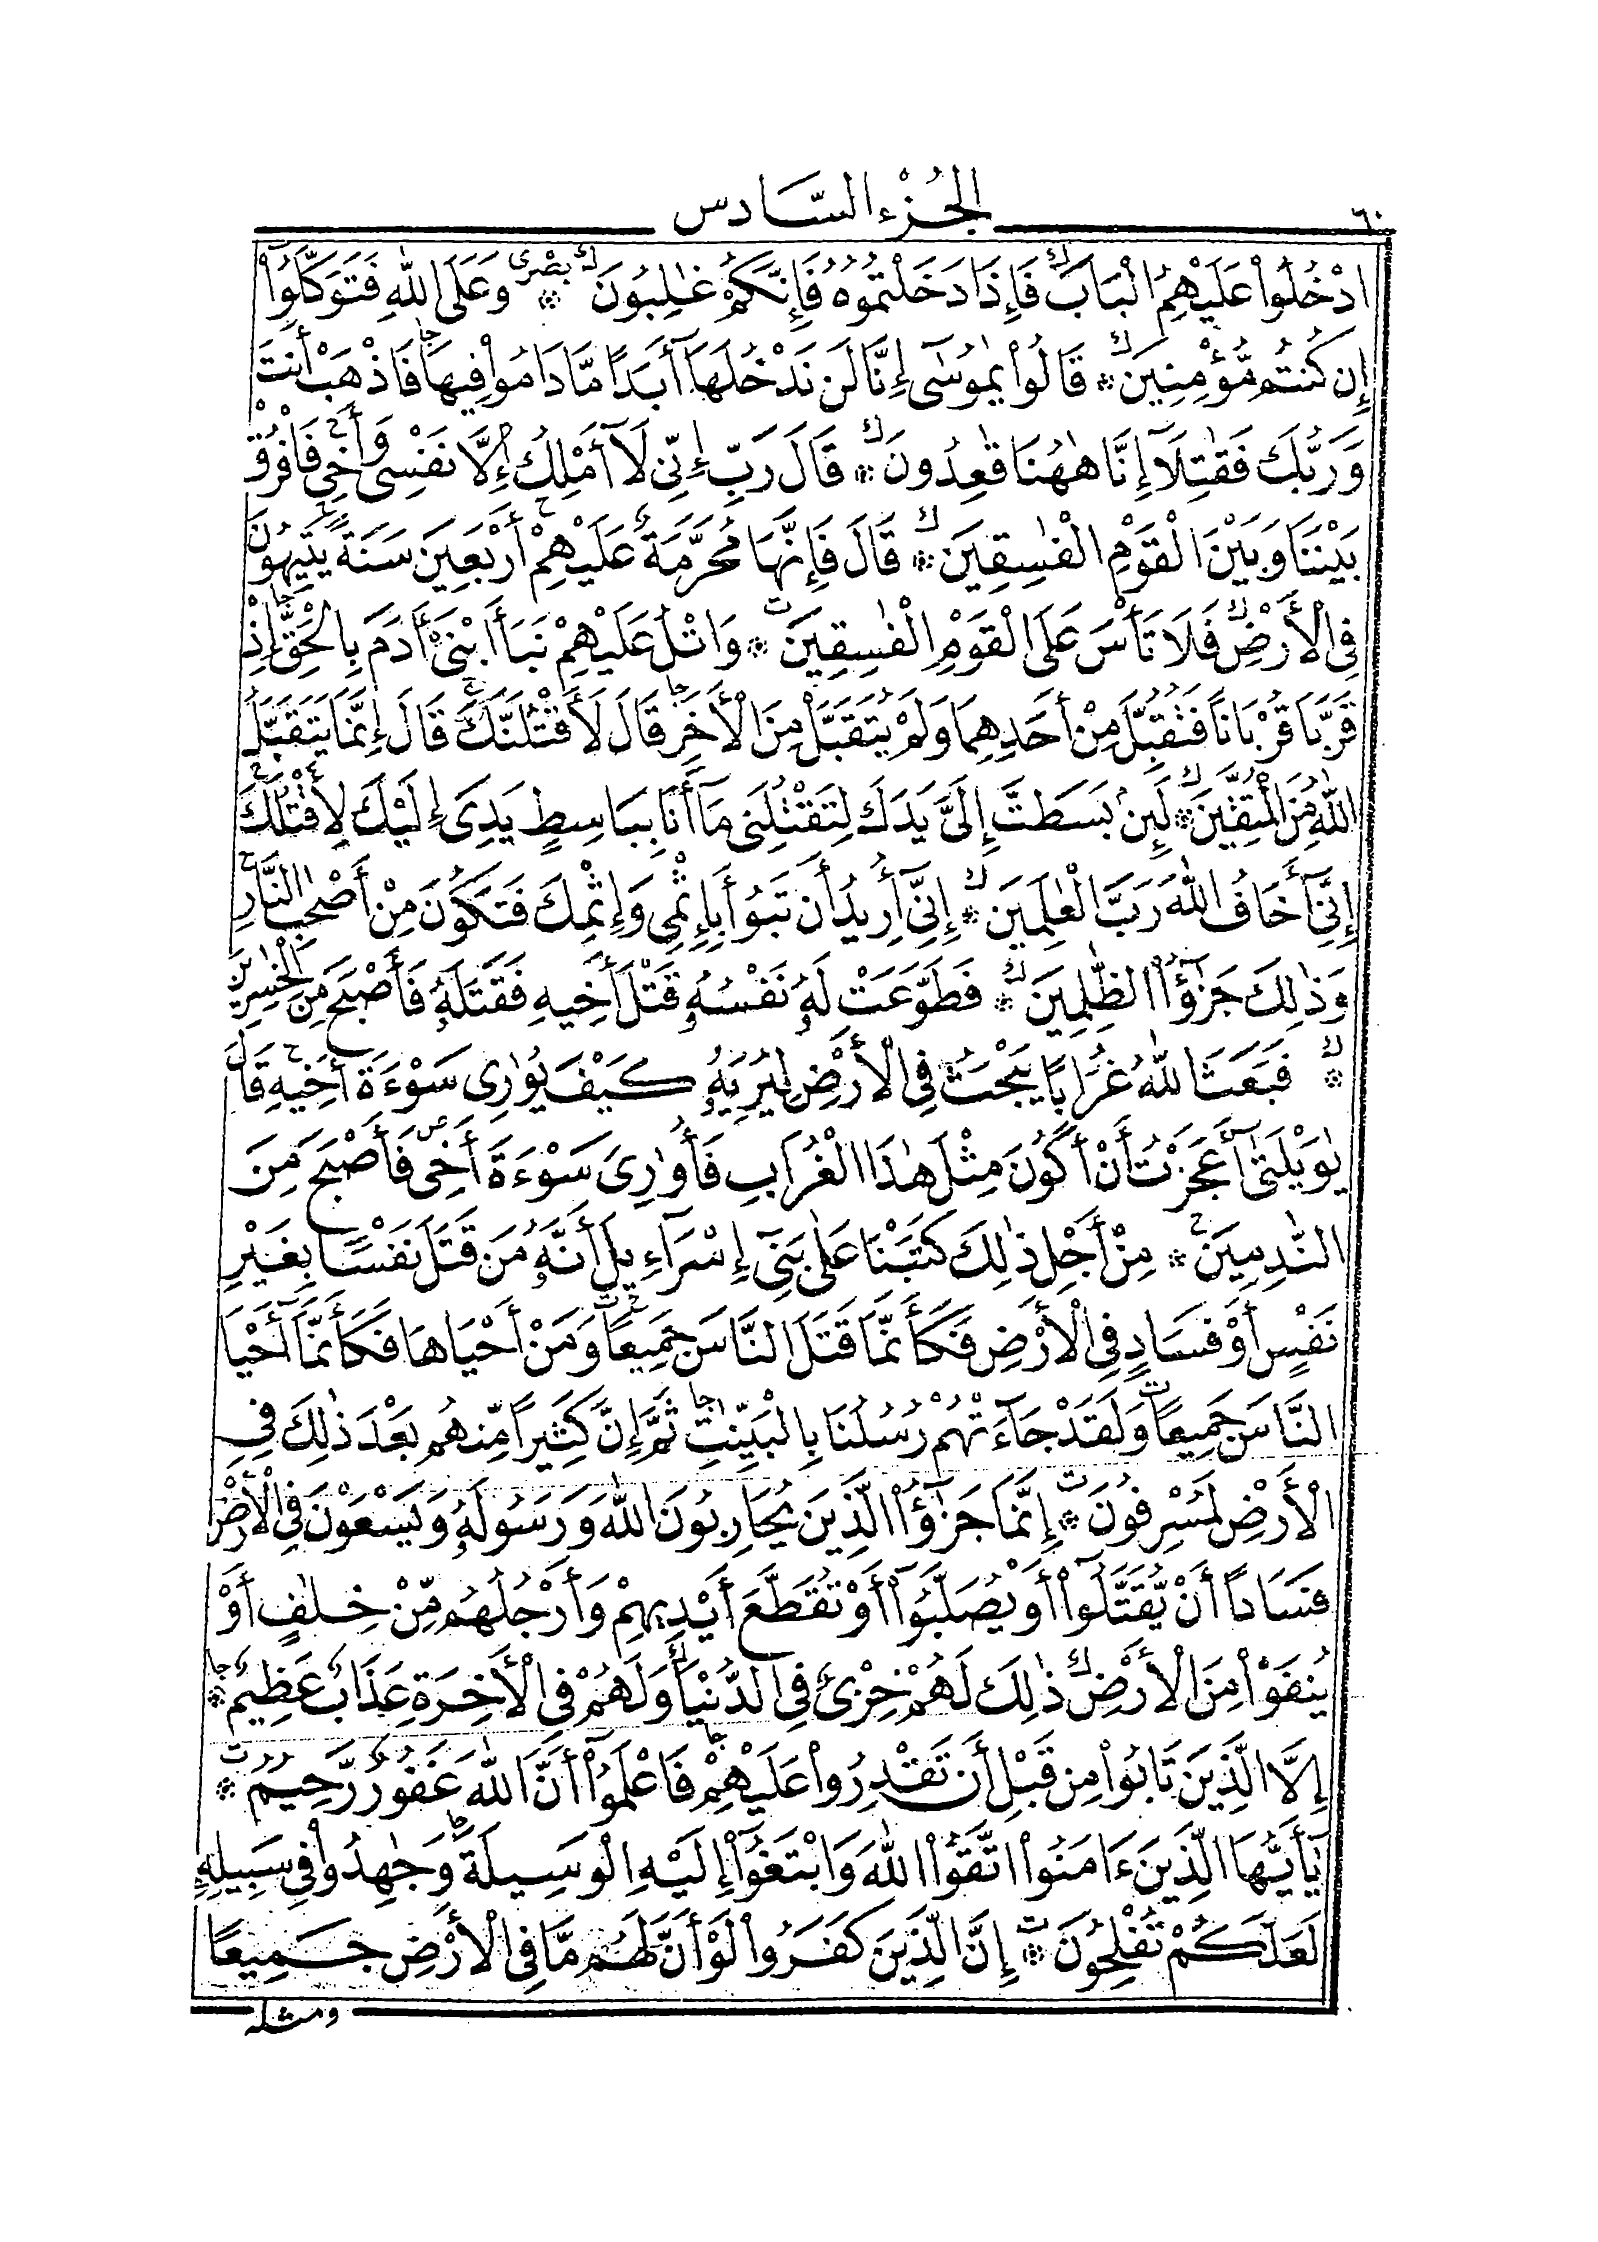 ٦٠
الجُزْء السَّادس
ادْخُلُواْ عَلَيْهِمُ الْبَابَ ك فَإِذَا دَخَلْتُمُوهُ فَإِنَّكُمْ غَٰلِبُونَ ك ۞ بصْرى وَعَلَى اللَّهِ فَتَوَكَّلُوٓاْ
إِن كُنتُم مُّؤْمِنِينَ ك ۞ قَالُواْ يَٰمُوسَىٰٓ إِنَّا لَن نَدْخُلَهَآ أَبَدًا مَّا دَامُواْ فِيهَا جا فَاذْهَبْ أَنتَ
وَرَبُّكَ فَقَٰتِلَآ إِنَّا هَٰهُنَا قَٰعِدُونَ ك ۞ قَالَ رَبِّ إِنِّى لَآ أَمْلِكُ إِلَّا نَفْسِى وَأَخِى ح فَافْرُقْ
بَيْنَنَا وَبَيْنَ الْقَوْمِ الْفَٰسِقِينَ ك ۞ قَالَ فَإِنَّهَا مُحَرَّمَةٌ عَلَيْهِمْ ح أَرْبَعِينَ سَنَةً ح يَتِيهُونَ
فِى الْأَرْضِ ك فَلَا تَأْسَ عَلَى الْقَوْمِ الْفَٰسِقِينَ ت ۞ وَاتْلُ عَلَيْهِمْ نَبَأَ ابْنَىْ ءَادَمَ بِالْحَقِّ جا إِذْ
قَرَّبَا قُرْبَانًا فَتُقُبِّلَ مِنْ أَحَدِهِمَا وَلَمْ يُتَقَبَّلْ مِنَ الْأَخَرِ جا قَالَ لَأَقْتُلَنَّكَ ح قَالَ إِنَّمَا يَتَقَبَّلُ
اللَّهُ مِنَ الْمُتَّقِينَ ك ۞ لَئِن بَسَطتَّ إِلَىَّ يَدَكَ لِتَقْتُلَنِى مَآ أَنَا بِبَاسِطٍ يَدِىَ إِلَيْكَ لِأَقْتُلَكَ ح
إِنِّىٓ أَخَافُ اللَّهَ رَبَّ الْعَٰلَمِينَ ك ۞ إِنِّىٓ أُرِيدُ أَن تَبُوٓأَ بِإِثْمِى وَإِثْمِكَ فَتَكُونَ مِنْ أَصْحَٰبِ النَّارِ ح
وَذَٰلِكَ جَزَٰٓؤُاْ الظَّٰلِمِينَ ك ۞ فَطَوَّعَتْ لَهُۥ نَفْسُهُۥ قَتْلَ أَخِيهِ فَقَتَلَهُۥ فَأَصْبَحَ مِنَ الْخَٰسِرِينَ
ك ۞ فَبَعَثَ اللَّهُ غُرَابًا يَبْحَثُ فِى الْأَرْضِ لِيُرِيَهُۥ كَيْفَ يُوَٰرِى سَوْءَةَ أَخِيهِ ح قَالَ
يَٰوَيْلَتَىٰٓ أَعَجَزْتُ أَنْ أَكُونَ مِثْلَ هَٰذَا الْغُرَابِ فَأُوَٰرِىَ سَوْءَةَ أَخِى ص فَأَصْبَحَ مِنَ
النَّٰدِمِينَ ح ۞ مِنْ أَجْلِ ذَٰلِكَ كَتَبْنَا عَلَىٰ بَنِىٓ إِسْرَآءِيلَ أَنَّهُۥ مَن قَتَلَ نَفْسًا بِغَيْرِ
نَفْسٍ أَوْ فَسَادٍ فِى الْأَرْضِ فَكَأَنَّمَا قَتَلَ النَّاسَ جَمِيعًا ح ت وَمَنْ أَحْيَاهَا فَكَأَنَّمَآ أَحْيَا
النَّاسَ جَمِيعًا ت وَلَقَدْ جَآءَتْهُمْ رُسُلُنَا بِالْبَيِّنَٰتِ جا ثُمَّ إِنَّ كَثِيرًا مِّنْهُم بَعْدَ ذَٰلِكَ فِى
الْأَرْضِ لَمُسْرِفُونَ ت ۞ إِنَّمَا جَزَٰٓؤُاْ الَّذِينَ يُحَارِبُونَ اللَّهَ وَرَسُولَهُۥ وَيَسْعَوْنَ فِى الْأَرْضِ
فَسَادًا أَنْ يُّقَتَّلُوٓاْ أَوْ يُصَلَّبُوٓاْ أَوْ تُقَطَّعَ أَيْدِيهِمْ وَأَرْجُلُهُم مِّنْ خِلَٰفٍ أَوْ
يُنفَوْاْ مِنَ الْأَرْضِ ك ذَٰلِكَ لَهُمْ خِزْىٌ فِى الدُّنْيَا ك وَلَهُمْ فِى الْأَخِرَةِ عَذَابٌ عَظِيمٌ جا ۞
إِلَّا الَّذِينَ تَابُواْ مِن قَبْلِ أَن تَقْدِرُواْ عَلَيْهِمْ جا فَاعْلَمُوٓاْ أَنَّ اللَّهَ غَفُورٌ رَّحِيمٌ ت ۞
يَٰٓأَيُّهَا الَّذِينَ ءَامَنُواْ اتَّقُواْ اللَّهَ وَابْتَغُوٓاْ إِلَيْهِ الْوَسِيلَةَ جا وَجَٰهِدُواْ فِى سَبِيلِهِۦ
لَعَلَّكُمْ تُفْلِحُونَ ت ۞ إِنَّ الَّذِينَ كَفَرُواْ لَوْ أَنَّ لَهُم مَّا فِى الْأَرْضِ جَمِيعًا
ومثله